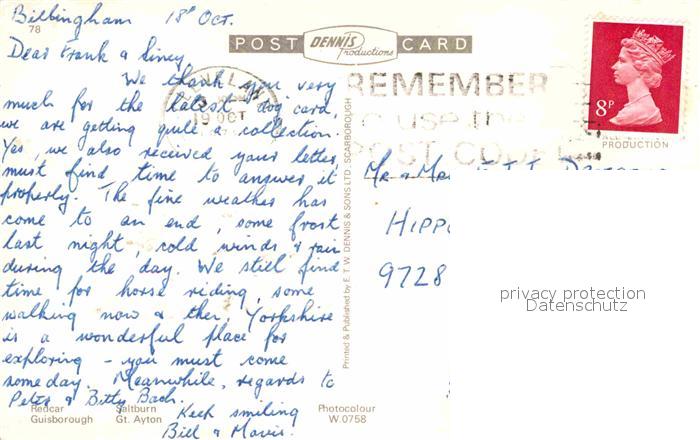 Billingham 18th Oct.
78
POST DENNIS Productions CARD
Dear Frank &
We thank you very
much for the latest dog card,
we are getting quite a collection.
Yes, we also received your letter,
must find time to answer it
properly. The fine weather has
come to an end, some frost
last night, cold winds & rain
during the day. We still find
time for horse riding, some
walking now & then, Yorkshire
is a wonderful place for
exploring - you must come
someday. Meanwhile, regards to
Peter & Betty Bach.
Keep smiling
Bill & Mavis.
Redcar Saltburn
Guisborough Gt. Ayton
Photocolour
W.0758
Printed & Published by E. T. W. DENNIS & SONS LTD., SCARBOROUGH
19 OCT
REMEMBER
use the
POST CODE
8P
PRODUCTION
Mr & Mrs
HIPP
9728
privacy protection
Datenschutz